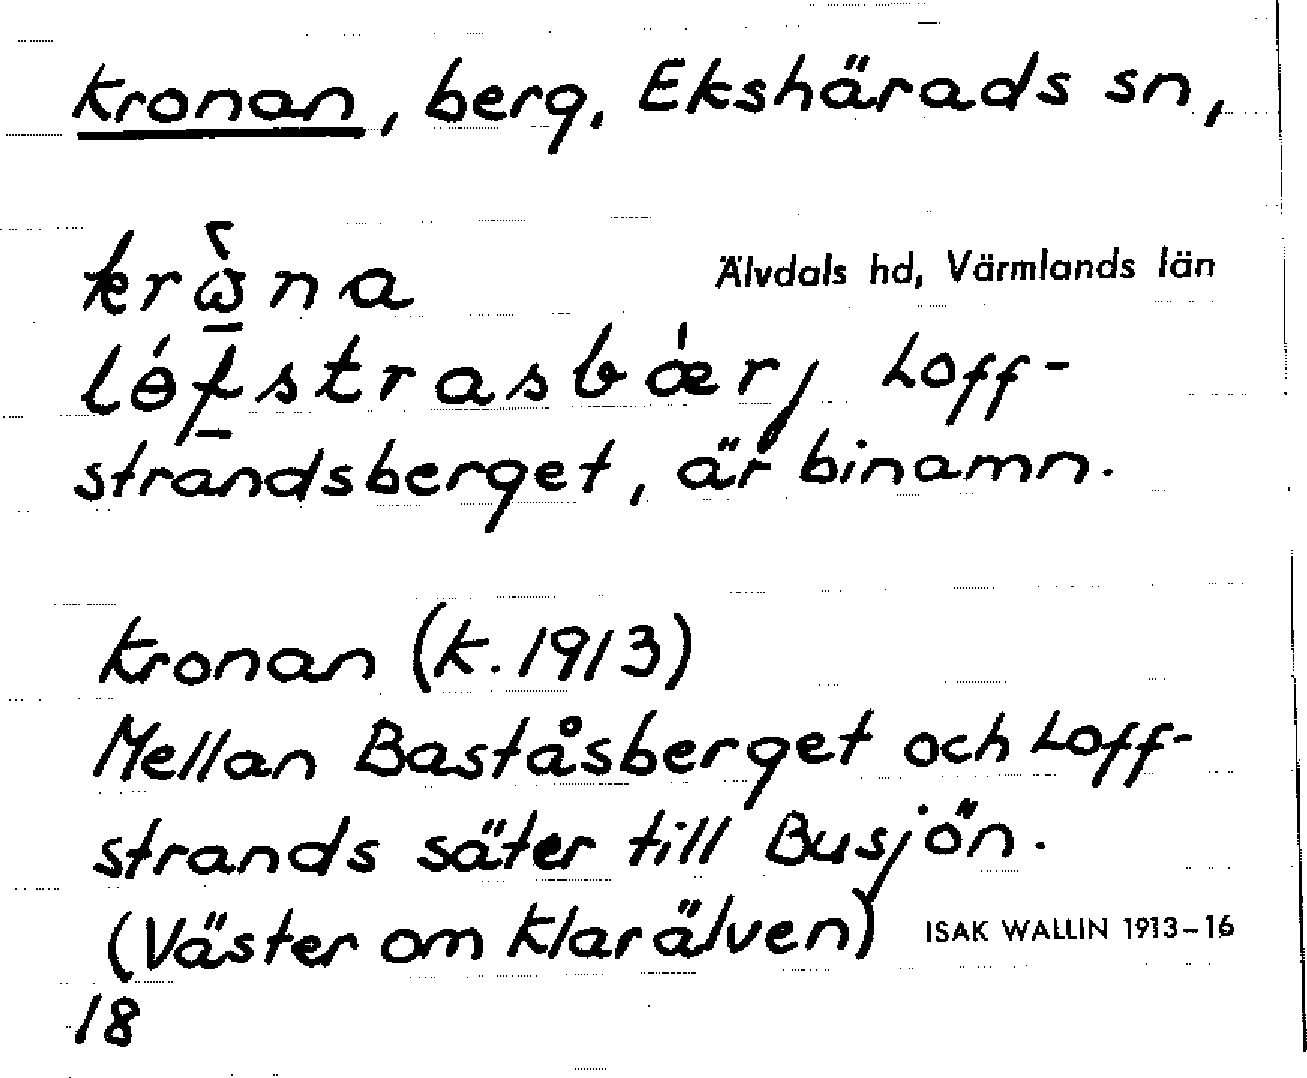 Kronan, berg, Ekshärads sn,
krὼ̱na
Älvdals hd, Värmlands län
lɵ́f̱strasbǽrj Loff-
strandsberget, är binamn.
Kronan (k. 1913)
Mellan Baståsberget och Loff-
strands säter till Busjön.
(Väster om Klarälven)
ISAK WALLIN 1913–16
18